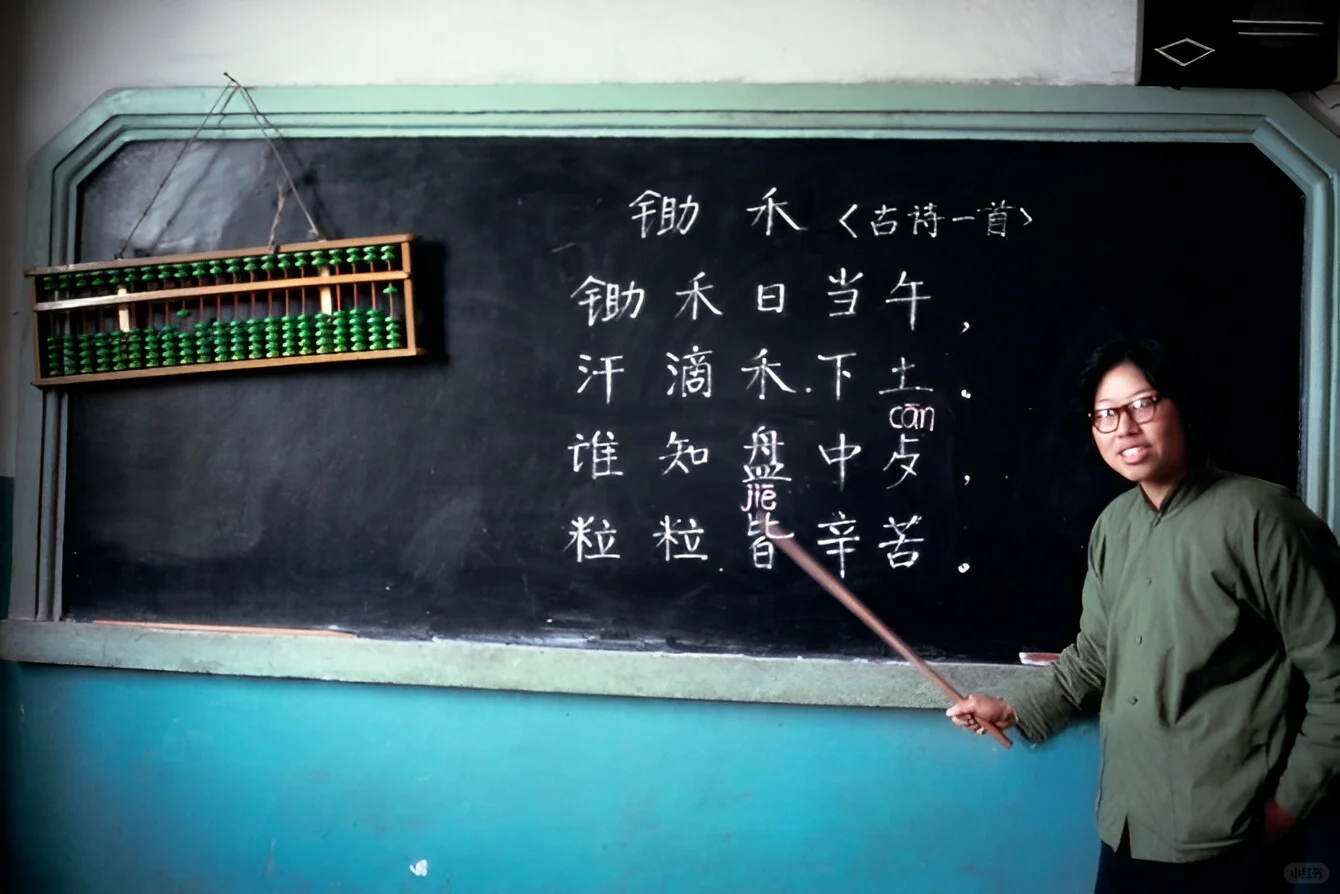 锄禾〈古诗一首〉
锄禾日当午,
汗滴禾下土。
cān
谁知盘中歺,
jiē
粒粒皆辛苦。
小红书